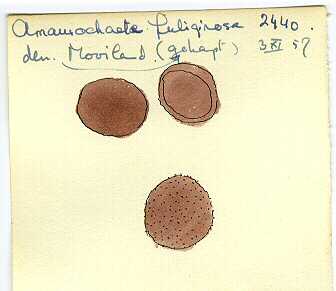 Amaurochaete fuliginosa 2440.
den. Moviland. (gekapt) 3 XI 57